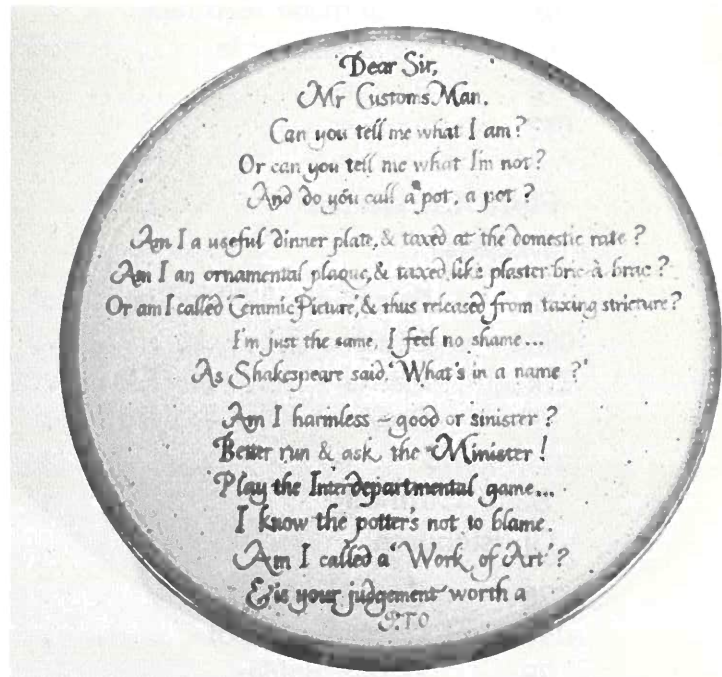 Dear Sir,
Mr Customs Man.
Can you tell me what I am?
Or can you tell me what I'm not?
And do you call a pot, a pot?
Am I a useful dinner plate, & taxed at the domestic rate?
Am I an ornamental plaque, & taxed like plaster bric-à-brac?
Or am I called 'Ceramic Picture', & thus released from taxing stricture?
I'm just the same, I feel no shame...
As Shakespeare said, 'What's in a name?'
Am I harmless – good or sinister?
Better run & ask the Minister!
Play the Interdepartmental game...
I know the potter's not to blame.
Am I called a 'Work of Art'?
& is your judgement worth a
P.T.O